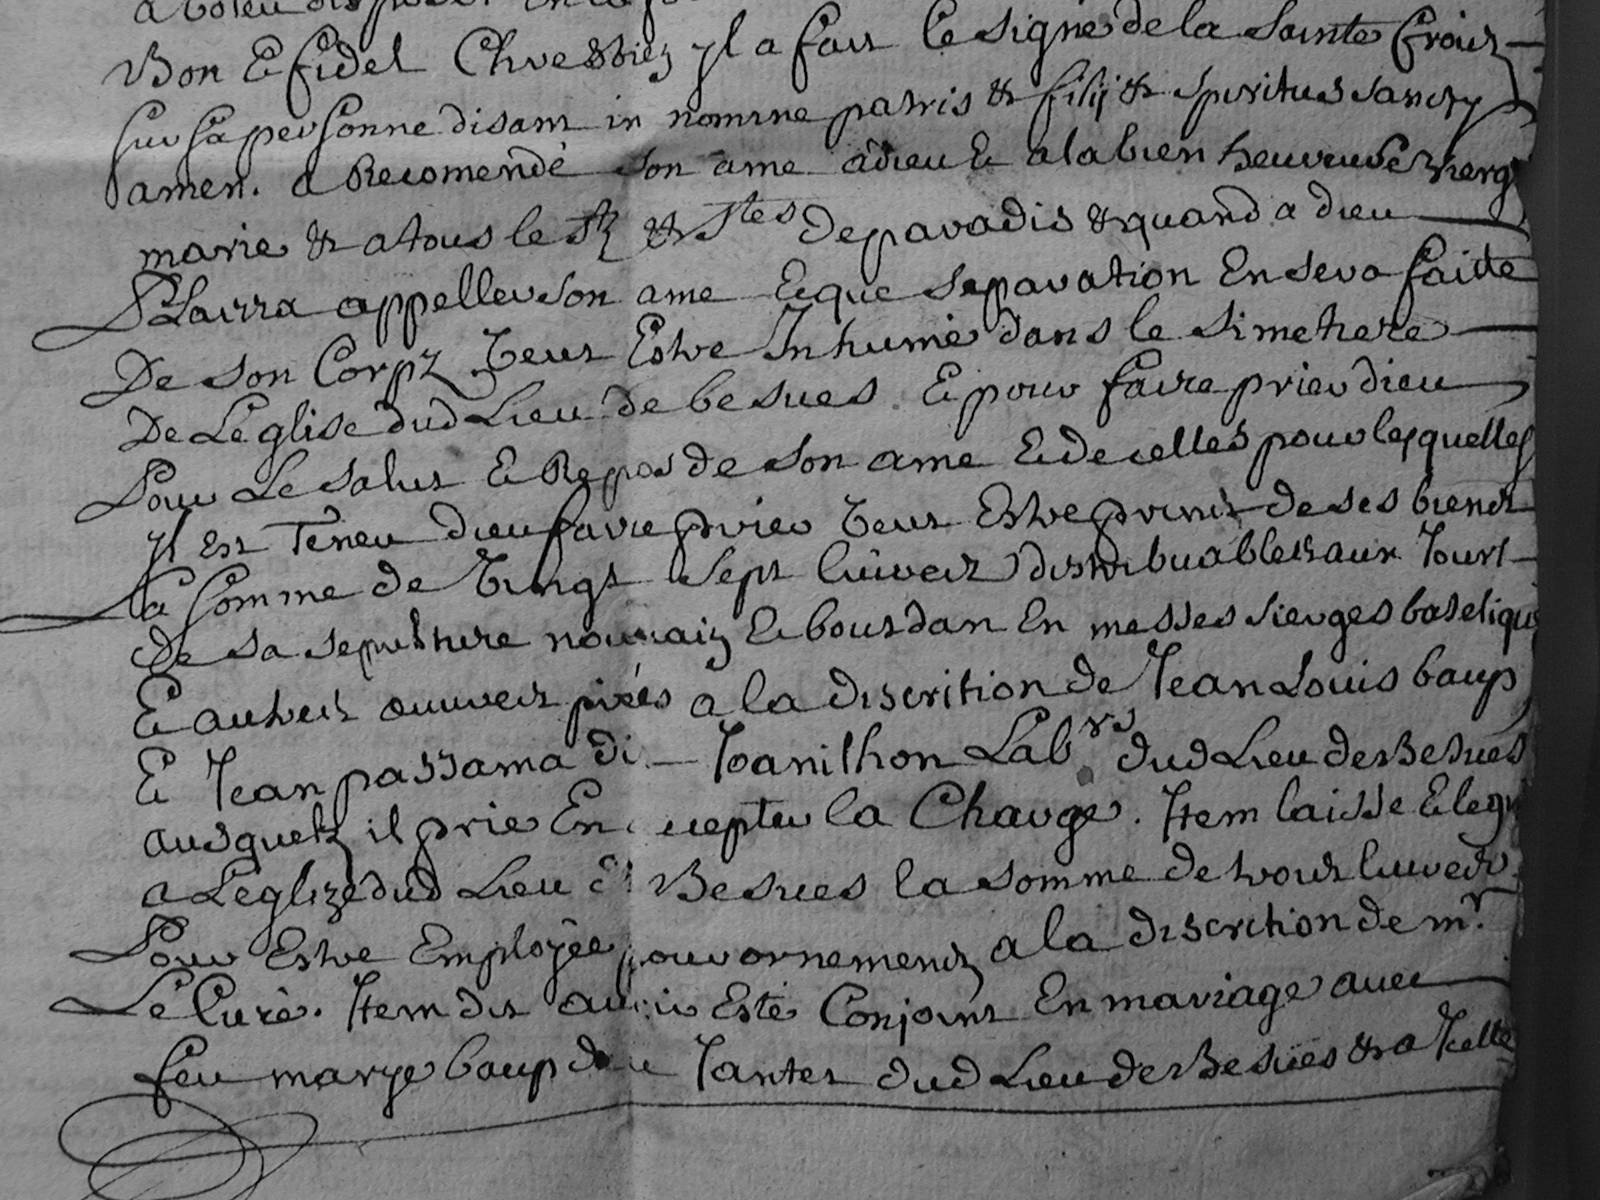 a voleu disposer
Bon E fidel Chrestiez yl a fait le signe de la Sainte Croix
sur sa personne disant in nomine patris & filij & spiritus sancty
amen. a Recomendé son ame a dieu E a la bien heureuse vierge
marie & a tous le Stz & Stes de paradis & quand a dieu
Plairra appeller son ame E que separation En sera faitte
De son Corpz Veut Estre Inhumé dans le simetiere
De L'eglise dud Lieu de besues. E pour faire prier dieu
Pour Le salut E Repos de son ame E de celles pour lesquelles
yl est Teneu dieu faire prier Veut Estre prins de ses biens
la somme de Vingt sept livres distribuables aux Jours
de sa sepulture nouvaiz E bout dan En messes sierges baselique
E autres œuvres piées a la discrition de Jean Louis baup
E Jean passama di Toanilhon Labrs dud Lieu de Besues
ausquelz il prie En cepter la Charge. Item laisse E legu
a L'eglize dud Lieu de Besues la somme de trois livres
Pour Estre Employée pour ornemens a la discrition de mr.
Le Curé. Item dit avoir Esté Conjoint En mariage avec
feu marye baup deu Tantet dud Lieu de Besues & a Icelle